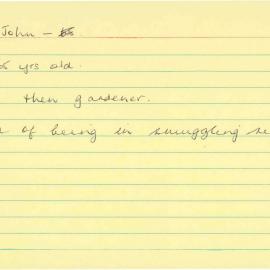 John –
yrs old.
then gardener.
of being in smuggling se